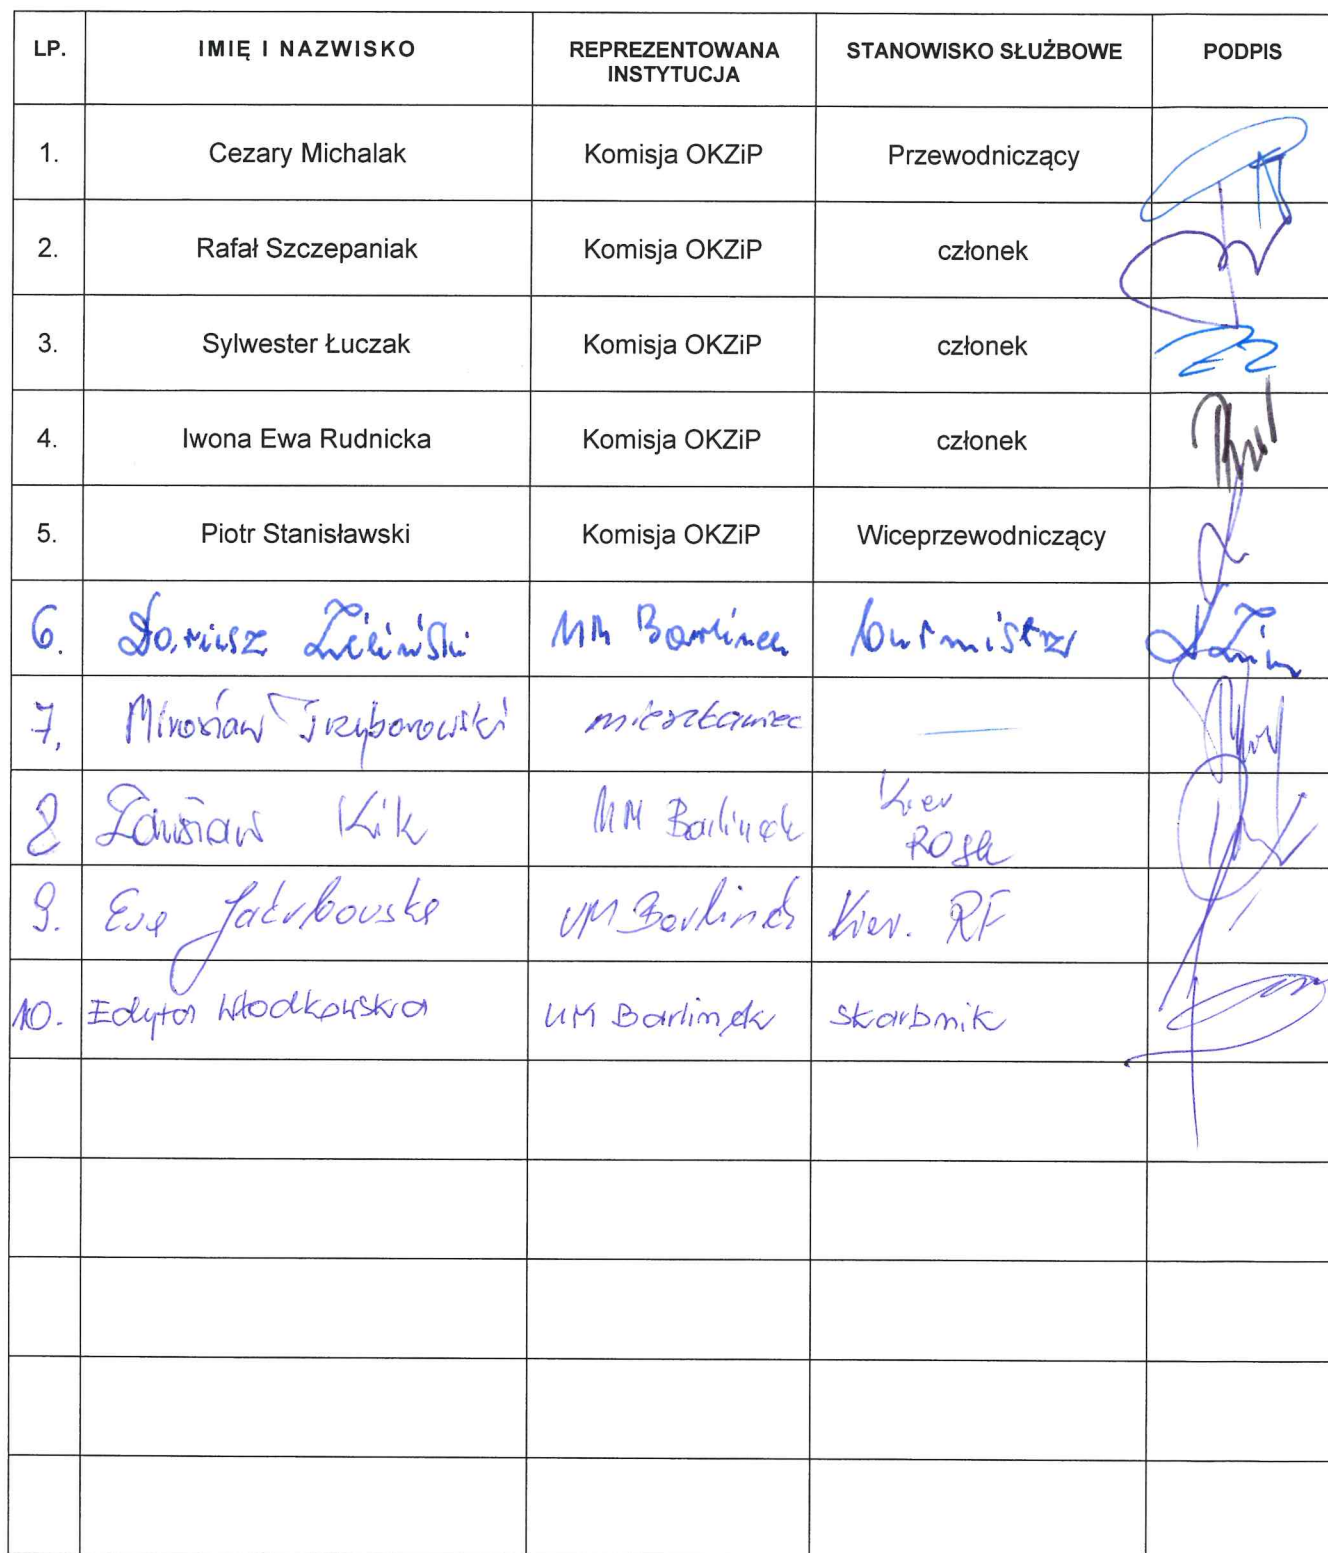 LP. IMIĘ I NAZWISKO REPREZENTOWANA INSTYTUCJA STANOWISKO SŁUŻBOWE PODPIS
1. Cezary Michalak Komisja OKZiP Przewodniczący
2. Rafał Szczepaniak Komisja OKZiP członek
3. Sylwester Łuczak Komisja OKZiP członek
4. Iwona Ewa Rudnicka Komisja OKZiP członek
5. Piotr Stanisławski Komisja OKZiP Wiceprzewodniczący
6. Dariusz Zieliński UM Barlinek burmistrz
7. Mirosław Trzyborowski mieszkaniec —
8 Zdzisław Kik UM Barlinek Kier
9. Ewa Jakubowska UM Barlinek Kier. RF
10. Edyta Włodkowska UM Barlinek skarbnik